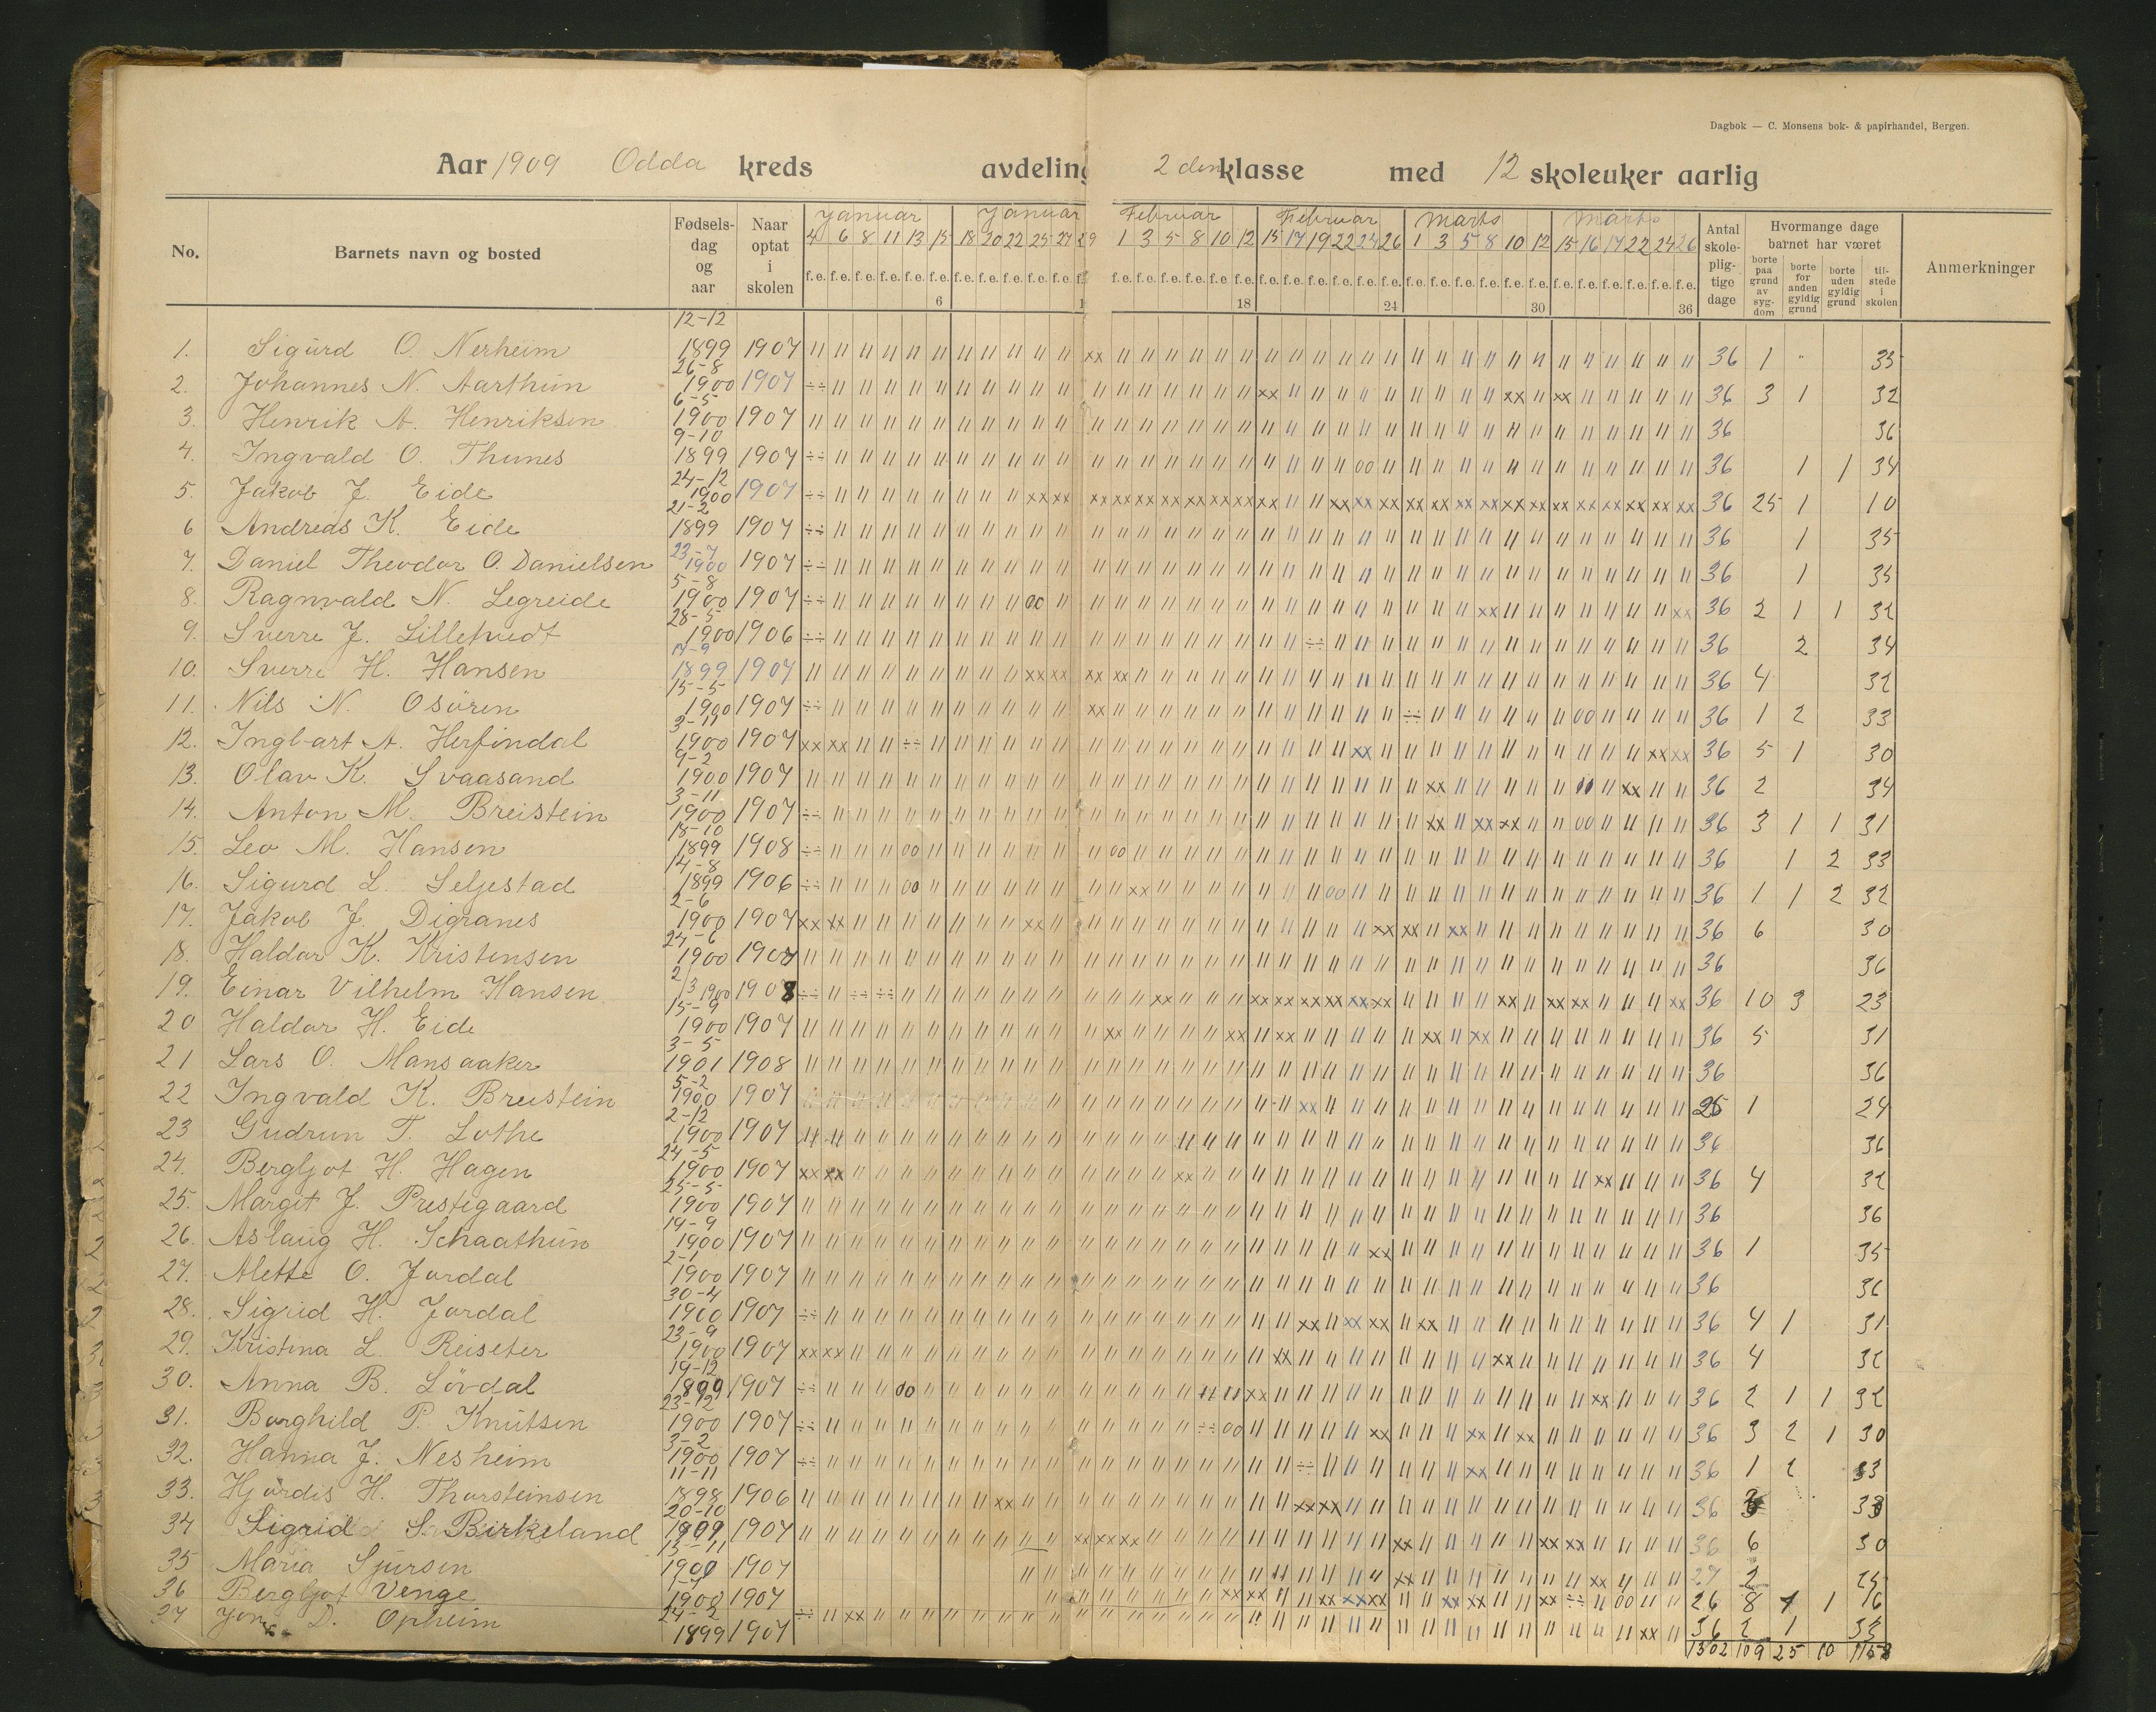 Dagbok — C. Monsens bok- & papirhandel, Bergen.
Aar 1909 Odda kreds avdeling 2 den klasse med 12 skoleuker aarlig
No. Barnets navn og bosted Fødsels-dag og aar Naar optat i skolen Januar Januar Februar Februar Marts Marts Antal skole-plig-tige dage Hvormange dage barnet har været Anmerkninger
4 6 8 11 13 15 18 20 22 25 27 29 1 3 5 8 10 12 15 17 19 22 24 26 1 3 5 8 10 12 15 16 17 22 24 26
borte paa grund av syg-dom borte for anden gyldig grund borte uden gyldig grund til-stede i skolen
f.e. f.e. f.e. f.e. f.e. f.e. f.e. f.e. f.e. f.e. f.e. f.e. f.e. f.e. f.e. f.e. f.e. f.e. f.e. f.e. f.e. f.e. f.e. f.e. f.e. f.e. f.e. f.e. f.e. f.e. f.e. f.e. f.e. f.e. f.e.
6 1 18 24 30 36
1. Sigurd O. Nerheim 12-12 1899 1907 36 1 " 35
2. Johannes N. Aarthun 26-8 1900 1907 36 3 1 32
3. Henrik A. Henriksen 6-5 1900 1907 36 36
4. Ingvald O. Thunes 9-10 1899 1907 36 1 1 34
5. Jakob J. Eide 24-12 1900 1907 36 25 1 10
6 Andreas K. Eide 21-2 1899 1907 36 1 35
7. Daniel Theodor O. Danielsen 23-7 1900 1907 36 1 35
8. Ragnvald N. Legreide 5-8 1900 1907 36 2 1 1 32
9. Sverre J. 28-5 1900 1906 36 2 34
10. Sverre H. Hansen 17-9 1899 1907 36 4 32
11. Nils N. Osøren 15-5 1900 1907 36 1 2 33
12. Ingbart A. Herfindal 3-11 1900 1907 36 5 1 30
13. Olav K. Svaasand 9-2 1900 1907 36 2 34
14. Anton M. Breistein 3-11 1900 1907 36 3 1 1 31
15. Leo M. Hansen 18-10 1899 1908 36 1 2 33
16. Sigurd L. Seljestad 14-8 1899 1906 36 1 1 2 32
17. Jakob J. Digranes 2-6 1900 1907 36 6 30
18. Haldor K. Kristensen 24-6 1900 1907 36 36
19. Einar Vilhelm Hansen 2/3 1900 1908 36 10 3 23
20 Haldor H. Eide 15-9 1900 1907 36 5 31
21 Lars O. Mansaaker 3-5 1901 1908 36 36
22 Ingvald K. Breistein 5-2 1900 1907 25 1 24
23 Gudrun T. Lothe 2-12 1900 1907 36 36
24. Bergljot H. Hagen 24-5 1900 1907 36 4 32
25. Margit J. Prestegaard 25-5 1900 1907 36 36
26. Aslaug H. Schaathun 19-9 1900 1907 36 1 35
27. Alette O. Jordal 2-1 1900 1907 36 36
28. Sigrid H. Jordal 30-4 1900 1907 36 4 1 31
29. Kristina L. Reiseter 23-9 1900 1907 36 4 32
30. Anna B. Lövdal 19-12 1899 1907 36 2 1 1 32
31. Borghild P. Knutsen 23-12 1900 1907 36 3 2 1 30
32. Hanna J. Nesheim 3-2 1900 1907 36 1 2 33
33. Hjördis H. Thorsteinsen 11-11 1898 1906 36 3 33
34 Sigrid S. Birkeland 20-10 1907 36 6 30
35 Maria Sjursen 13-11 1900 1907 27 2 25
36 Bergljot Venge 1900 1907 26 8 1 1 16
37 D. Opheim 24-2 1899 1907 36 2 1 33
1302 109 25 10 1158